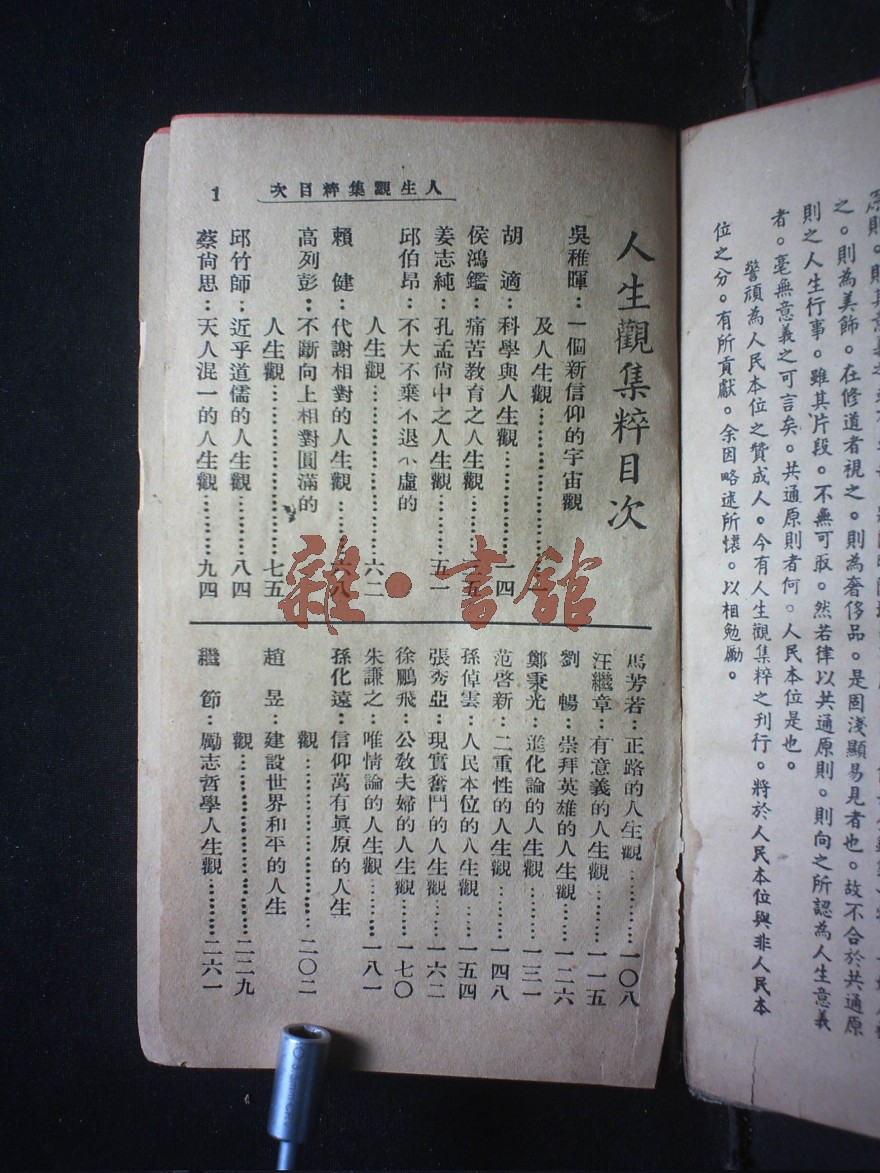 之。則為美飾。在修道者視之。則為奢侈品。是固淺顯易見者也。故不合於共通原
則之人生行事。雖其片段。不無可取。然若律以共通原則。則向之所認為人生意義
者。毫無意義之可言矣。共通原則者何。人民本位是也。
警頑為人民本位之贊成人。今有人生觀集粹之刊行。將於人民本位與非人民本
位之分。有所貢獻。余因略述所懷。以相勉勵。
人生觀集粹目次
1
人生觀集粹目次
吳稚暉：一個新信仰的宇宙觀
及人生觀…………………
胡　適：科學與人生觀…………一四
侯鴻鑑：痛苦教育之人生觀………五
姜志純：孔孟尙中之人生觀………五一
邱伯昂：不大不棄不退不虛的
人生觀…………………六二
賴　健：代謝相對的人生觀………六八
高列彭：不斷向上相對圓滿的
人生觀…………………七五
邱竹師：近乎道儒的人生觀………八四
蔡尙思：天人混一的人生觀………九四
馬芳若：正路的人生觀…………一〇八
汪繼章：有意義的人生觀………一一五
劉　暢：崇拜英雄的人生觀……一二六
鄭秉光：進化論的人生觀………一三一
范啓新：二重性的人生觀………一四八
孫倬雲：人民本位的人生觀……一五四
張秀亞：現實奮鬥的人生觀……一六二
徐鵬飛：公教夫婦的人生觀……一七〇
朱謙之：唯情論的人生觀………一八一
孫化遠：信仰萬有眞原的人生
觀…………………………二〇二
趙　昱：建設世界和平的人生
觀…………………………二二九
繼　節：勵志哲學人生觀………二六一
雜·書館